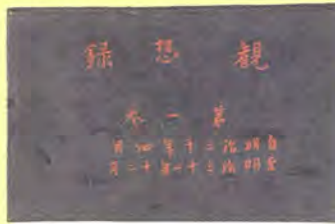 観想録
第一巻
自明治三十年四月
至明治三十一年十二月